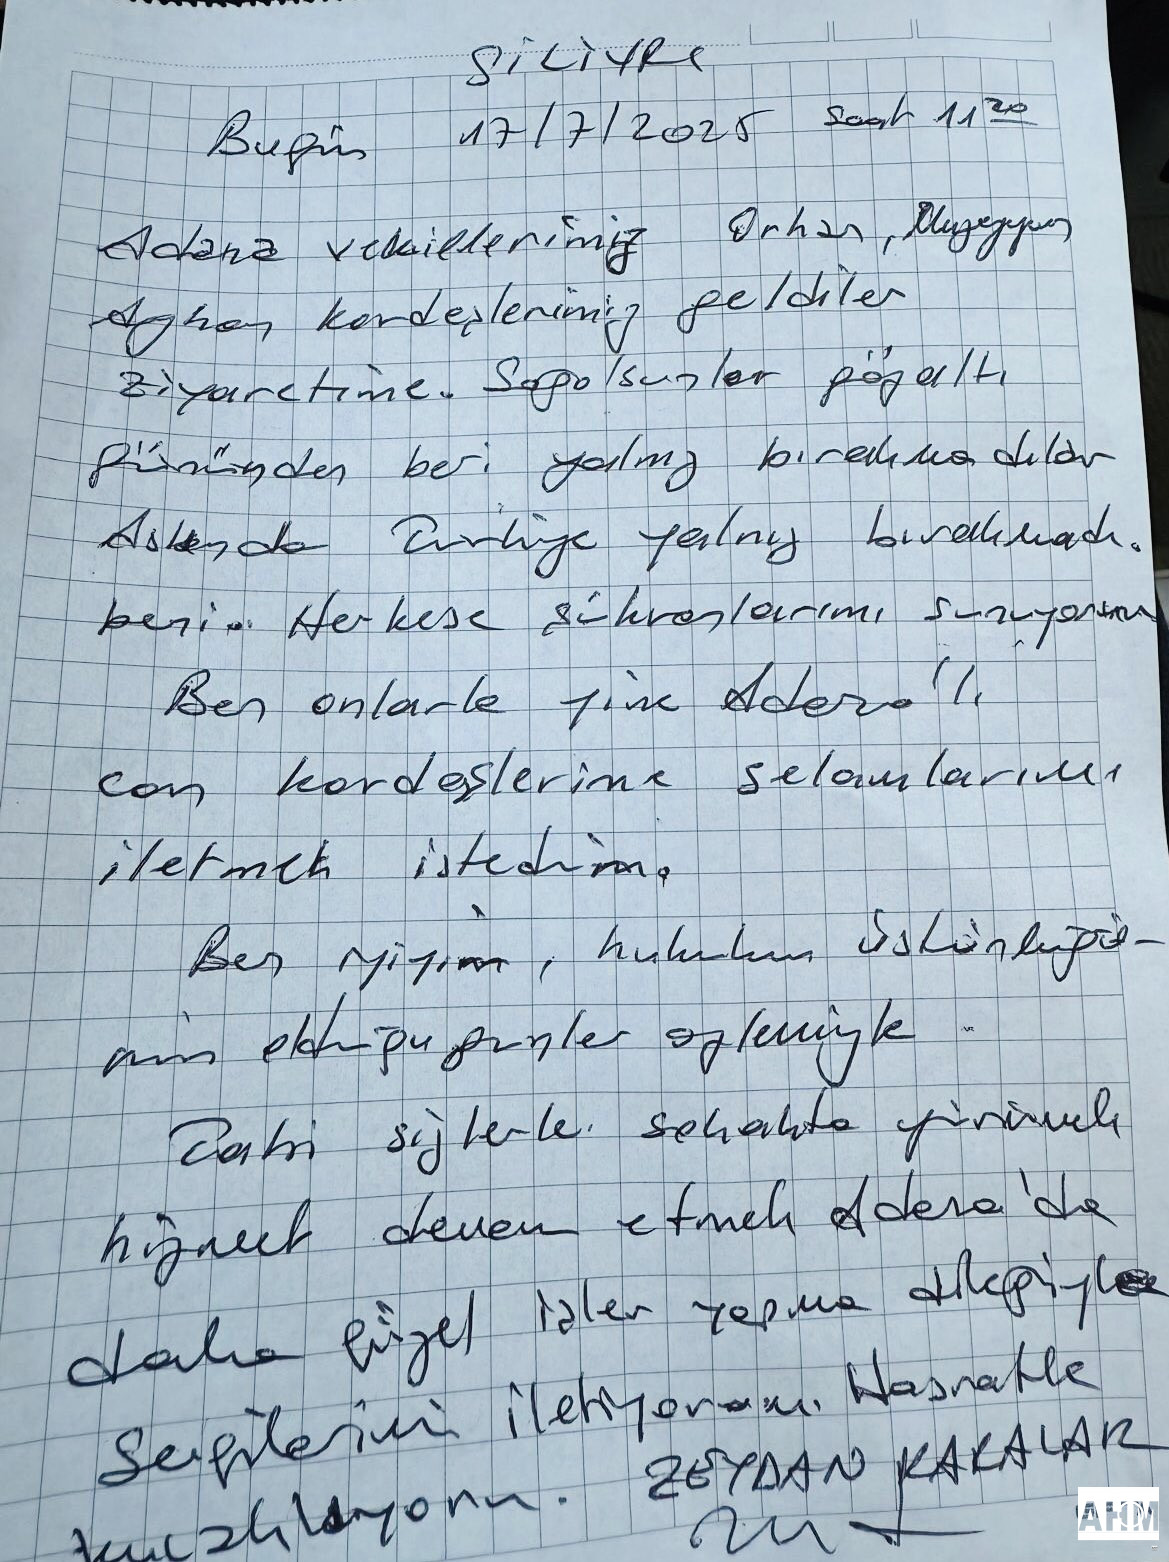 SİLİVRİ
Bugün 17/7/2025 saat 11 20
Adana vekillerimiz Orhan, Müzeyyen
Ayhan kardeşlerimiz geldiler
ziyaretime. Sağolsunlar gözaltı
gününden beri yalnız bırakmadılar
Aslında Türkiye yalnız bırakmadı.
beni.. Herkese şükranlarımı sunuyorum
Ben onlarla yine Adana'lı
can kardeşlerime selamlarımı
iletmek istedim.
Ben iyiyim, hukukun üstünlüğü-
nün olduğu günler özlemiyle ..
Tabi sizlerle. sokakta yürümek
hizmet devam etmek Adana'da
daha güzel işler yapma dileğiyle
Sevgilerimi iletiyorum. Hasretle
kucaklıyorum. ZEYDAN KARALAR
AHM